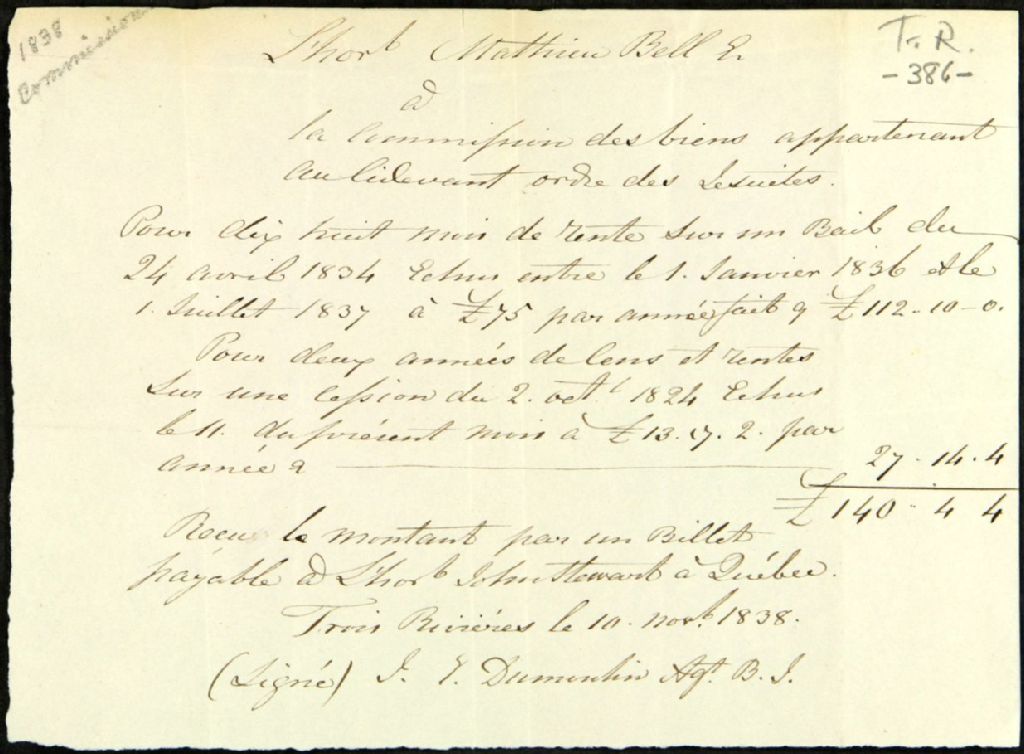 1838
Commission
T. R.
- 386 -
L'honb Mathieu Bell E.
à
la Commission des biens appartenant
au Cidevant ordre des Jesuites.
Pour dix huit mois de rente sur un Bail du
24 avril 1834 Echus entre le 1. Janvier 1836 et le
1. Juillet 1837 à £75 par année fait £112-10-0.
Pour deux années de Cens et rentes
sur une Cession du 2. octt 1824 Echus
le 11. du présent mois à £13.17.2. par
année 27-14-4
£140-4 4
Recu le montant par un Billet
payable à L'honb John Stewart à Québec.
Trois Rivières le 10. novb. 1838.
(Signé) J. E. Dumoulin Agt. B. J.